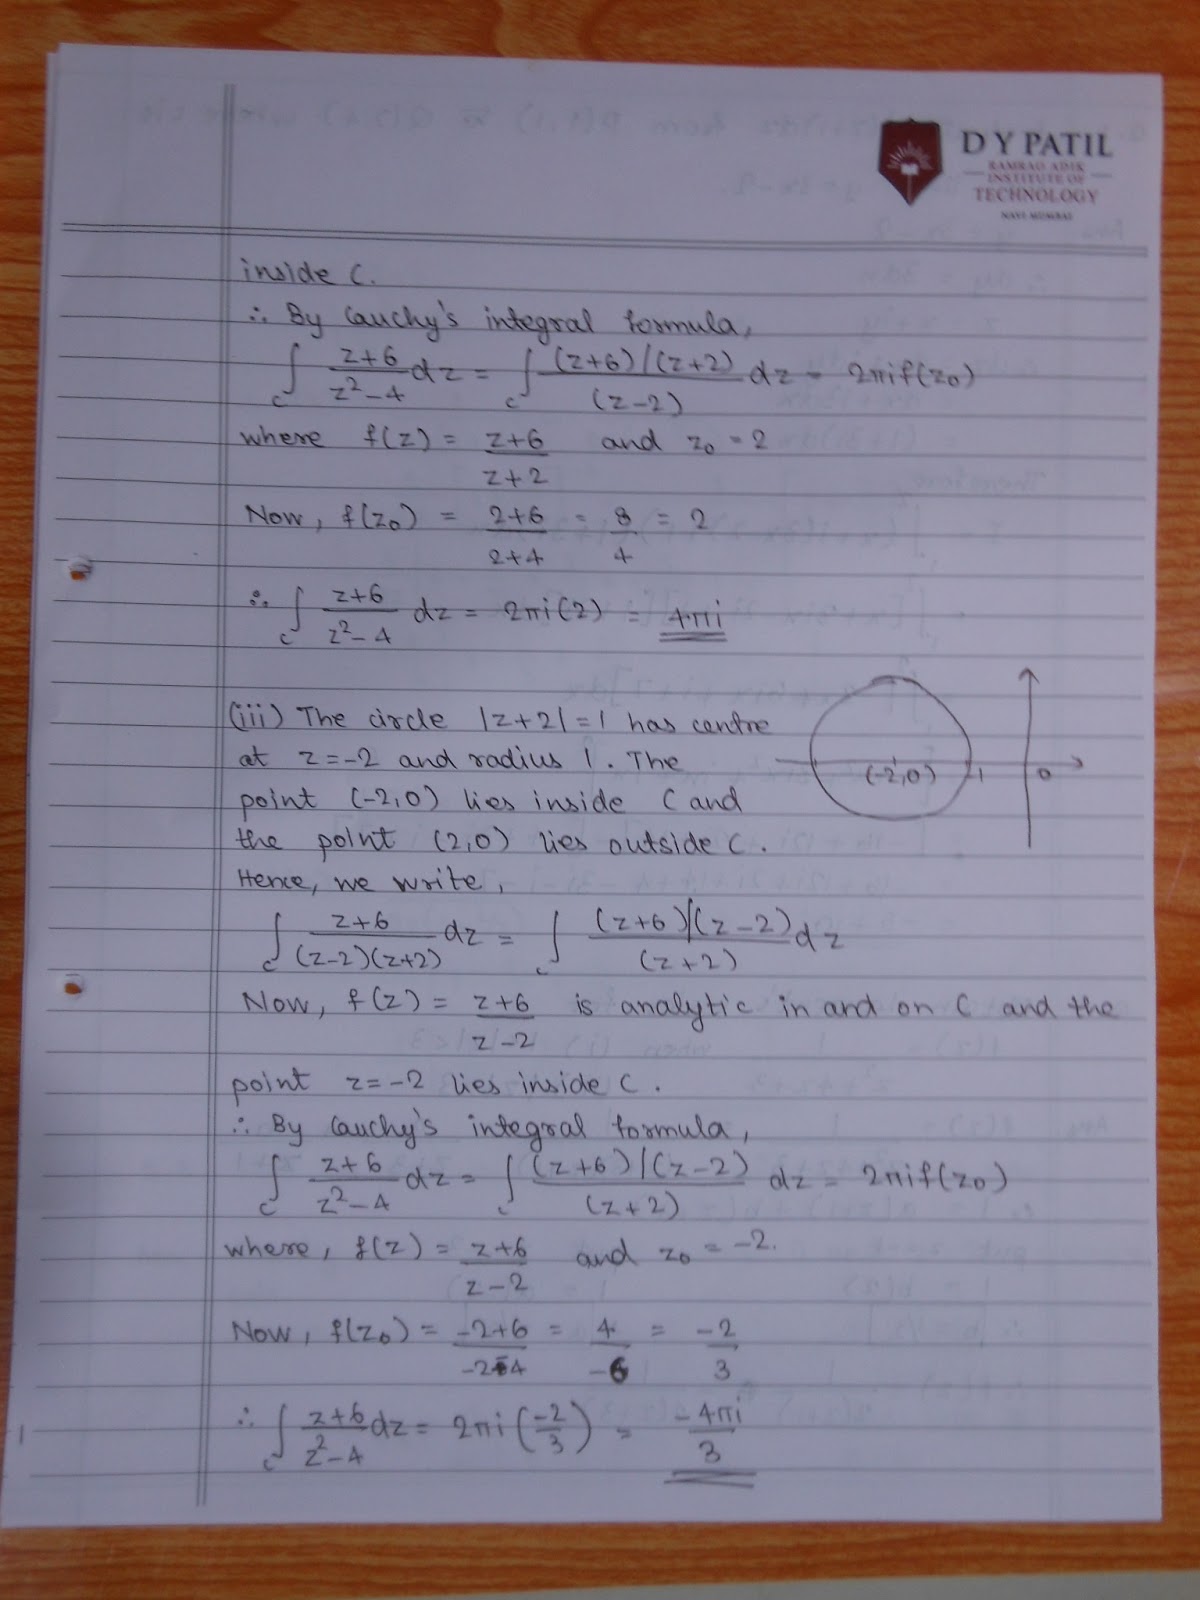 D Y PATIL
RAMRAO ADIK
INSTITUTE OF
TECHNOLOGY
NAVI MUMBAI
inside C.
∴ By Cauchy's integral formula,
∫_C (z+6)/(z²-4) dz = ∫_C ((z+6)/(z+2))/(z-2) dz = 2πi f(z₀)
where f(z) = (z+6)/(z+2) and z₀ = 2
Now, f(z₀) = (2+6)/(2+4) = 8/4 = 2
∴ ∫_C (z+6)/(z²-4) dz = 2πi(2) = 4πi
(iii) The circle |z+2|=1 has centre
at z=-2 and radius 1. The
point (-2,0) lies inside C and
the point (2,0) lies outside C.
(-2,0) -1 0
Hence, we write,
∫_C (z+6)/((z-2)(z+2)) dz = ∫_C ((z+6)/(z-2))/(z+2) dz
Now, f(z) = (z+6)/(z-2) is analytic in and on C and the
point z=-2 lies inside C.
∴ By Cauchy's integral formula,
∫_C (z+6)/(z²-4) dz = ∫_C ((z+6)/(z-2))/(z+2) dz = 2πi f(z₀)
where, f(z) = (z+6)/(z-2) and z₀ = -2.
Now, f(z₀) = (-2+6)/(-2-4) = 4/-6 = -2/3
∴ ∫_C (z+6)/(z²-4) dz = 2πi(-2/3) = -4πi/3